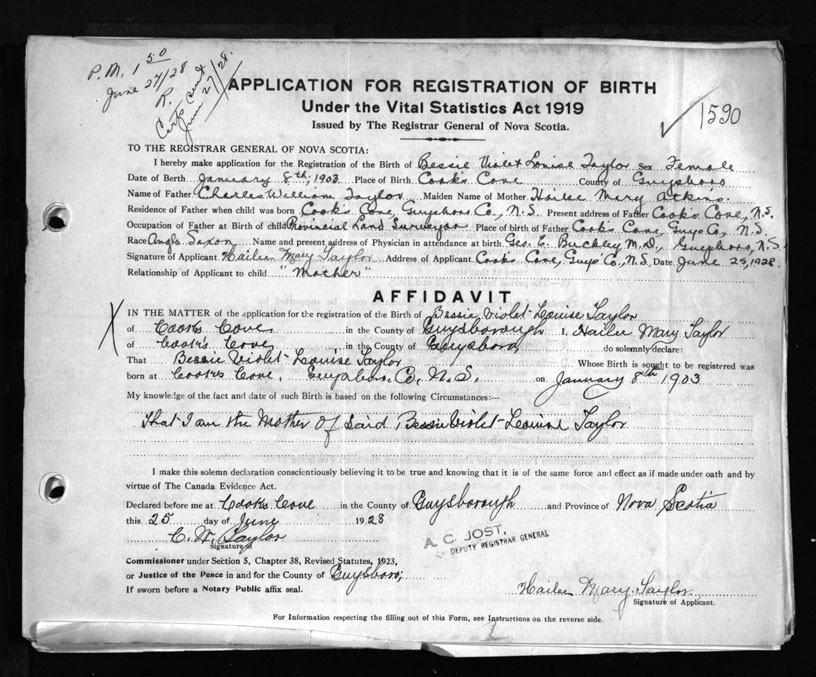 P.M. 1 50
June 27/28
R.
June 27/28.
APPLICATION FOR REGISTRATION OF BIRTH
Under the Vital Statistics Act 1919
Issued by The Registrar General of Nova Scotia.
1590
TO THE REGISTRAR GENERAL OF NOVA SCOTIA:
I hereby make application for the Registration of the Birth of Bessie Violet Louise Taylor Sex Female
Date of Birth January 8th, 1903 Place of Birth Cook's Cove County of Guysboro
Name of Father Charles William Taylor Maiden Name of Mother Mary Atkins.
Residence of Father when child was born Cook's Cove, Guysboro Co., N.S. Present address of Father Cook's Cove, N.S.
Occupation of Father at Birth of child Provincial Land Surveyor Place of birth of Father Cook's Cove, Guys Co., N.S.
Race Anglo Saxon Name and present address of Physician in attendance at birth Geo. E. Buckley M.D., Guysboro, N.S.
Signature of Applicant Mary Taylor Address of Applicant Cook's Cove, Guys Co., N.S. Date June 25, 1928
Relationship of Applicant to child "Mother"
AFFIDAVIT
X
IN THE MATTER of the application for the registration of the Birth of Bessie Violet Louise Taylor
of Cook's Cove in the County of Guysborough I, Mary Taylor
of Cook's Cove in the County of Guysboro, do solemnly declare:
That Bessie Violet Louise Taylor Whose Birth is sought to be registered was
born at Cook's Cove, Guysboro Co. N.S. on January 8th 1903
My knowledge of the fact and date of such Birth is based on the following Circumstances:—
That I am the Mother Of Said Bessie Violet Louise Taylor
I make this solemn declaration conscientiously believing it to be true and knowing that it is of the same force and effect as if made under oath and by
virtue of The Canada Evidence Act.
Declared before me at Cook's Cove in the County of Guysborough and Province of Nova Scotia
this 25 day of June 1928
A. C. JOST,
DEPUTY REGISTRAR GENERAL
C. W. Taylor
Signature of
Commissioner under Section 5, Chapter 38, Revised Statutes, 1923,
or Justice of the Peace in and for the County of Guysboro,
If sworn before a Notary Public affix seal.
Mary Taylor
Signature of Applicant.
For Information respecting the filling out of this Form, see Instructions on the reverse side.